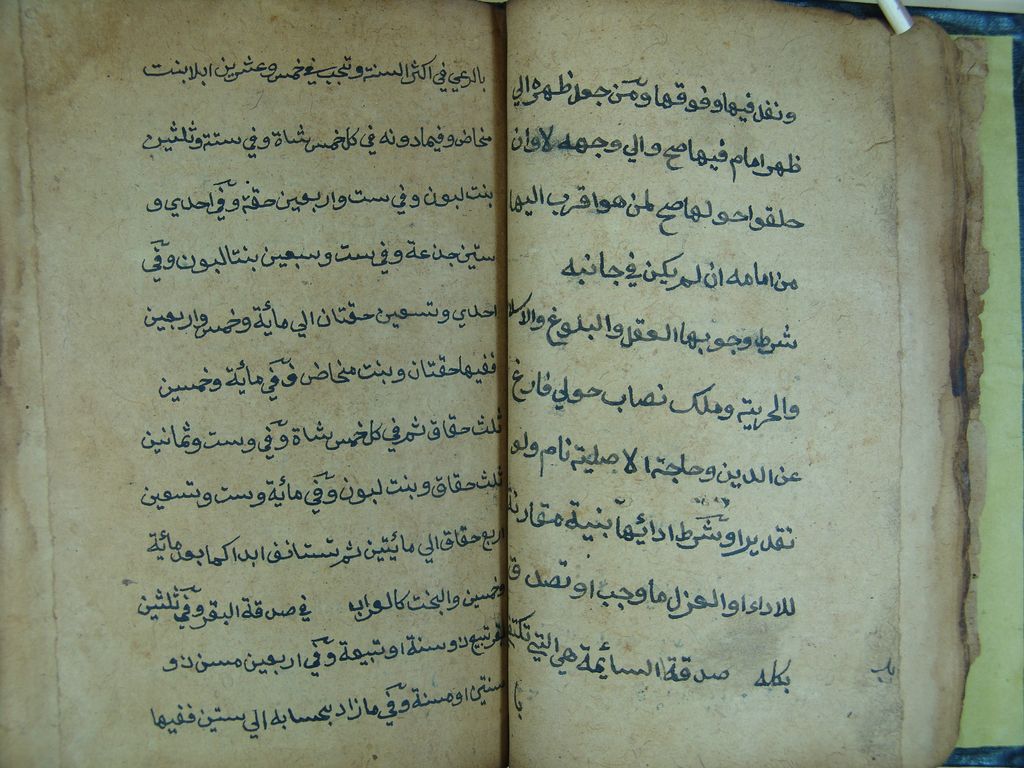 ونفل فيها وفوقها ومن جعل ظهره الي
ظهر امام فيها صح والي وجهه لا وان
حلقوا حولها صح لمن هو اقرب اليها
من امامه ان لم يكن في جانبه
شرط وجوبها العقل والبلوغ والاسلا
والحرية وملك نصاب حولي فارغ
عن الدين وحاجته الاصلية نام ولو
تقديرا وشرط ادائها بنية مقارنة
للاداء او العزل ما وجب او تصدق
بكله صدقة السائمة هي التي تكتفي
باب
بالرعي في اكثر السنة وتجب في خمس وعشرين ابلا بنت
مخاض وفيما دونه في كل خمس شاة وفي ستة وثلثين
بنت لبون وفي ست واربعين حقة وفي احدي و
ستين جذعة وفي ست وسبعين بنتا لبون وفي
احدي وتسعين حقتان الي مائة وخمس واربعين
ففيها حقتان وبنت مخاض وفي مائة وخمسين
ثلث حقاق ثم في كل خمس شاة وفي وست وثمانين
ثلث حقاق وبنت لبون وفي مائة وست وتسعين
اربع حقاق الي مائتين ثم تستانف ابدا كما بعد مائة
وخمسين والبخت كالعراب في صدقة البقر وفي ثلثين
بقر تبيع ذو سنة او تبيعة وفي اربعين مسن ذو
سنتين او مسنة وفي ما زاد بحسابه الي ستين ففيها